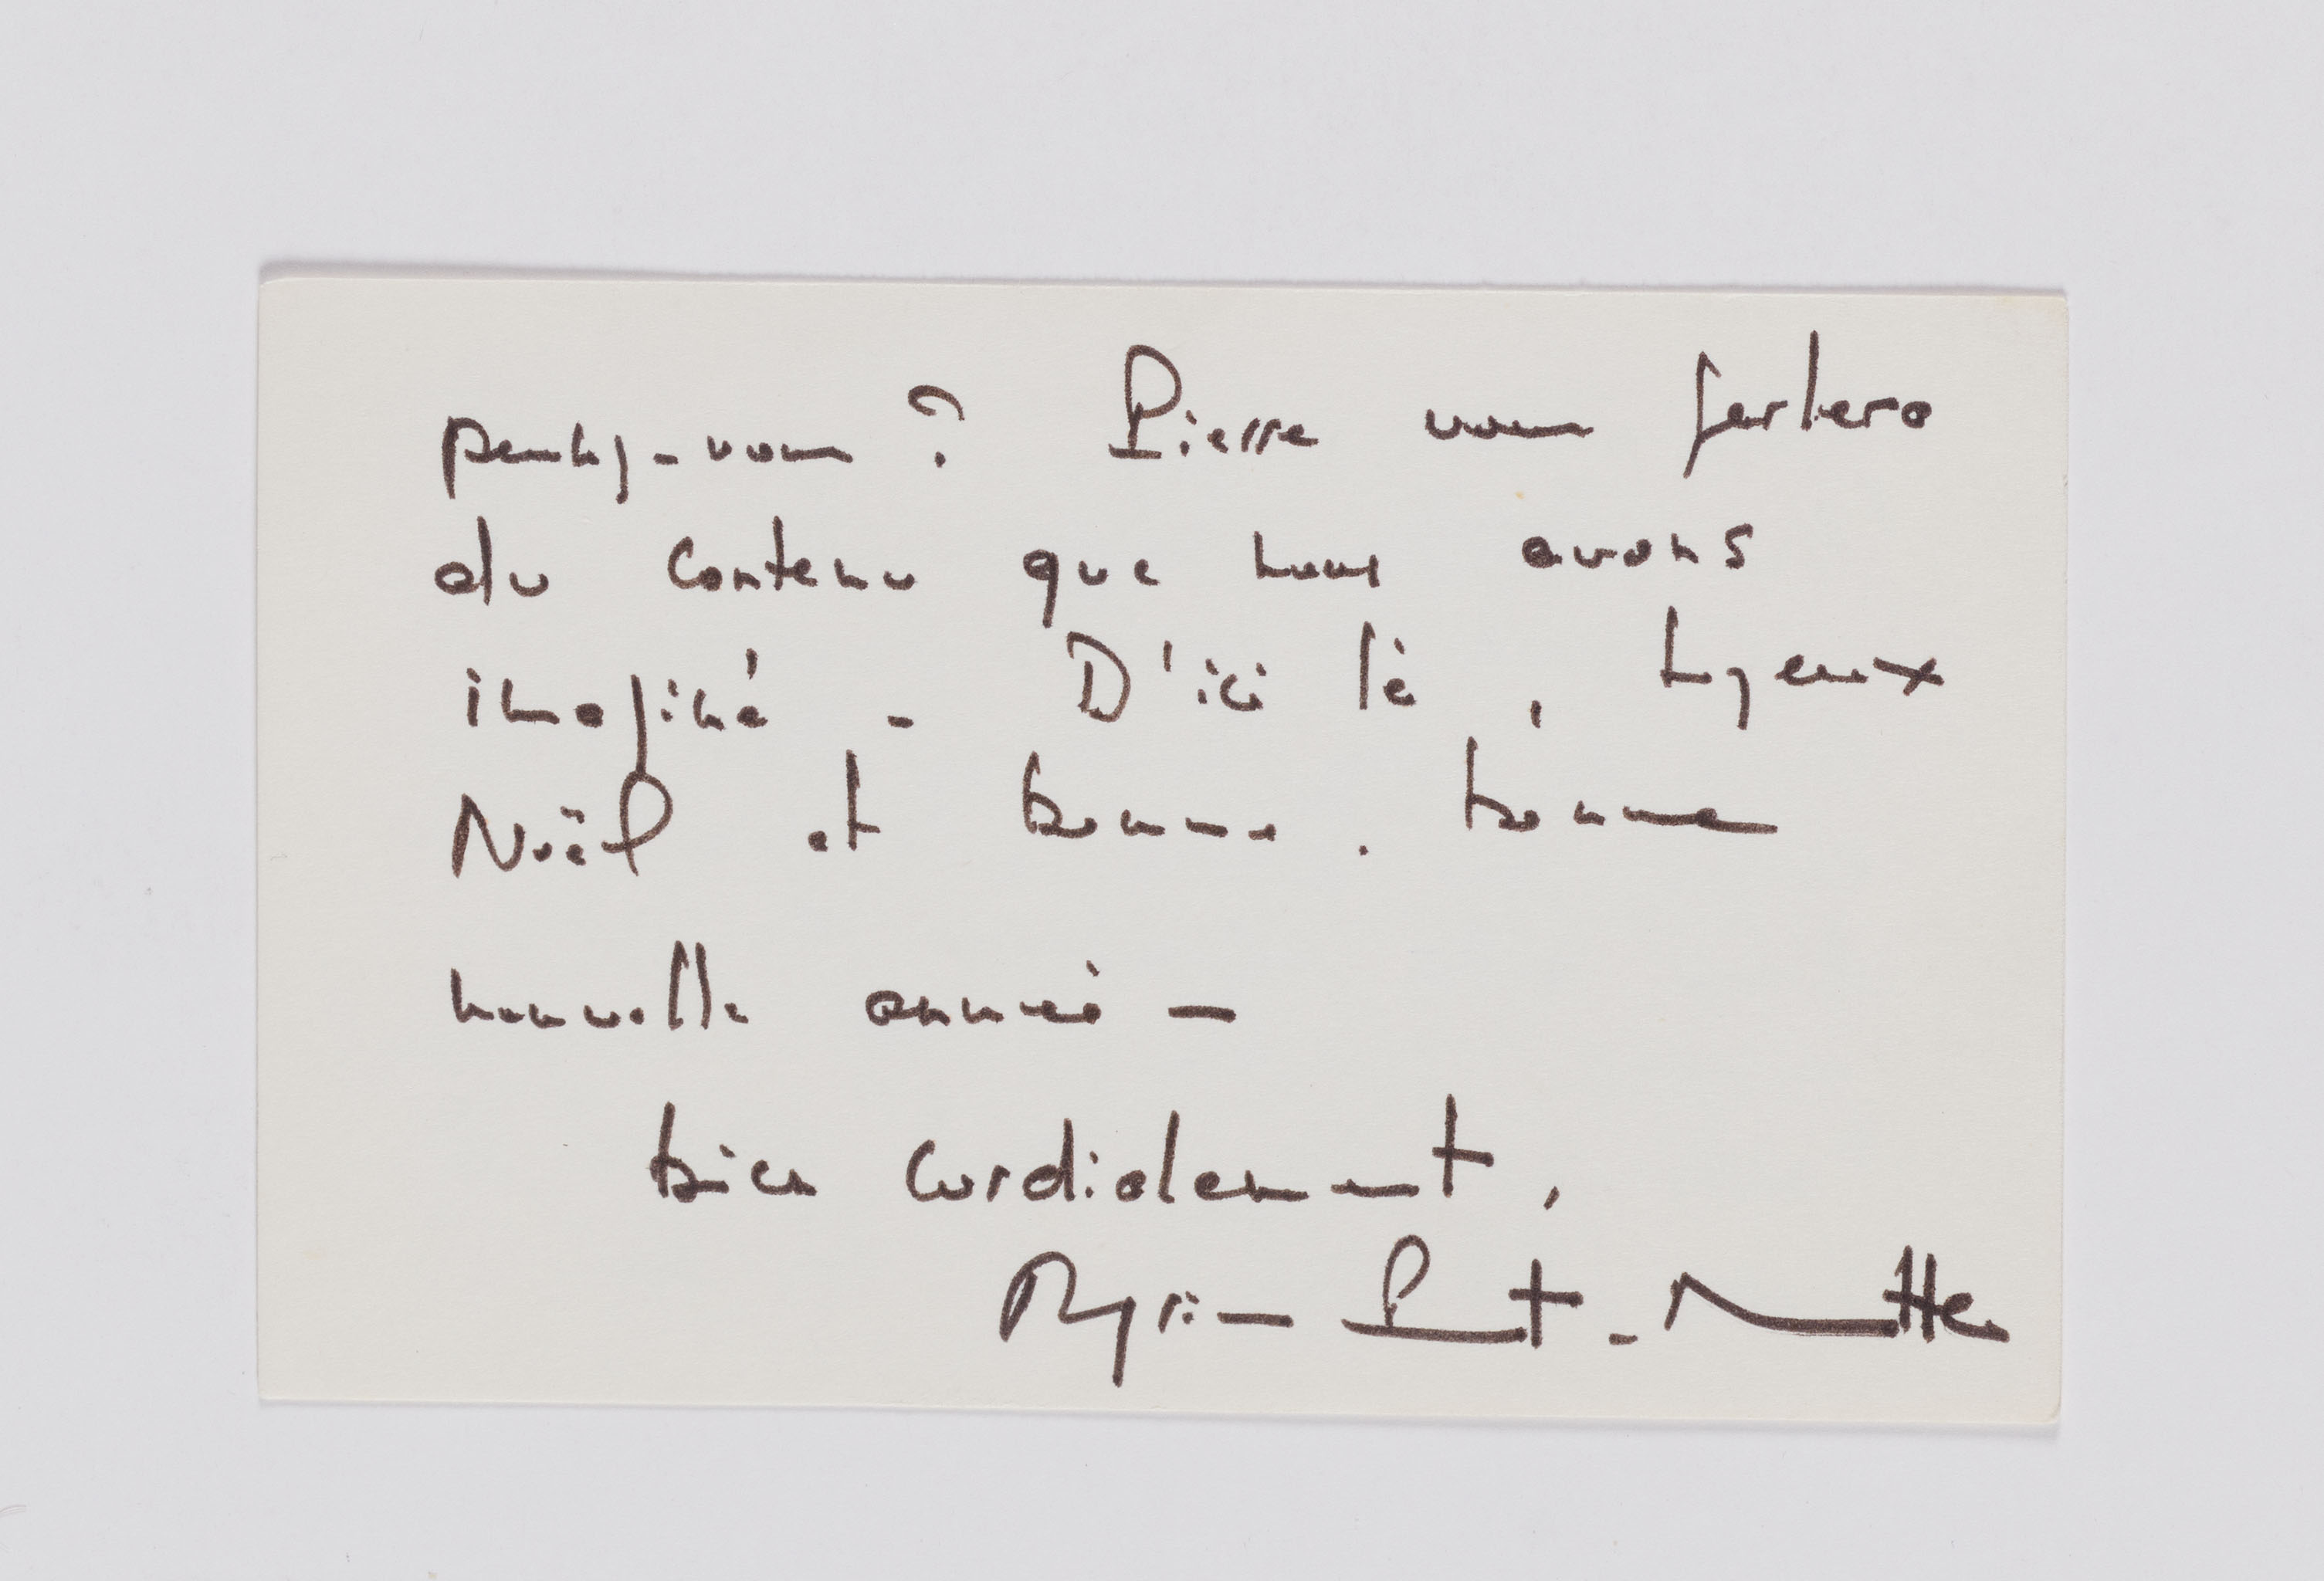 pensez-vous ? Pierre vous parlera
du contenu que nous avons
imaginé - D'ici là, Joyeux
Noël et bonne. bonne
nouvelle année -
bien cordialement,